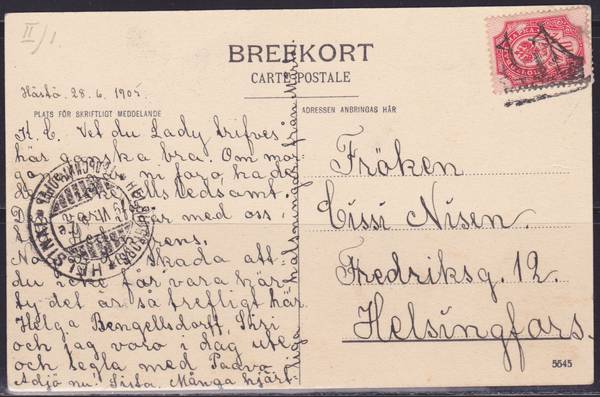 II/1
BREFKORT
CARTE POSTALE
Hästö 28.6.1905
PLATS FÖR SKRIFTLIGT MEDDELANDE
ADRESSEN ANBRINGAS HÄR
K. C. Vet du Lady trifves
här ganska bra. Om mor-
ni foro hade
ledsamt.
med oss
Skada att
du icke får vara här
ty det är så trefligt här
Helga Bengellsdorff, Siri
och jag voro i dag ute
och segla med Padva
Adjö nu! Sista. Många hjärt-
liga hälsningar från Märta
Fröken
Cissi Nisen.
Fredriksg. 12.
Helsingfors.
HELSINKI
HELSINGFORS
5545